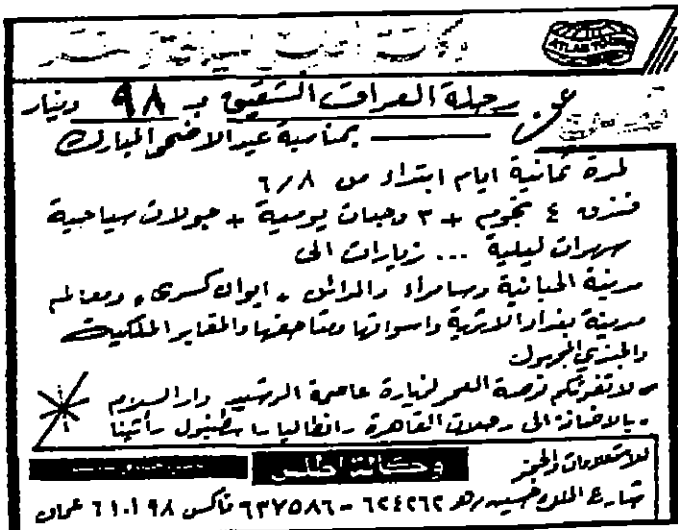 وكالة اطلس للسياحة والسفر
ATLAS TO
عن رحلة العراق الشقيق بـ ٩٨ دينار
بمناسبة عيد الاضحى المبارك
لمدة ثمانية ايام ابتداء من ٦/٨
فندق ٤ نجوم + ٣ وجبات يومية + جولات سياحية
سهرات ليلية ... زيارات الى
مدينة الحبانية وسامراء والمدائن ، ايوان كسرى ، ومعالم
مدينة بغداد الاثرية واسواقها ومتاحفها والمقابر الملكية
والجندي المجهول
- لا تفوتكم فرصة العمر لزيارة عاصمة الرشيد دار السلام
- بالاضافة الى رحلات القاهرة وانطاليا واسطنبول وأثينا
للاستعلامات والحجز
وكالة اطلس
شارع الملك حسين ٦٢٤٢٦٢ - ٦٣٧٥٨٦ فاكس ٦١٠١٩٨ عمان